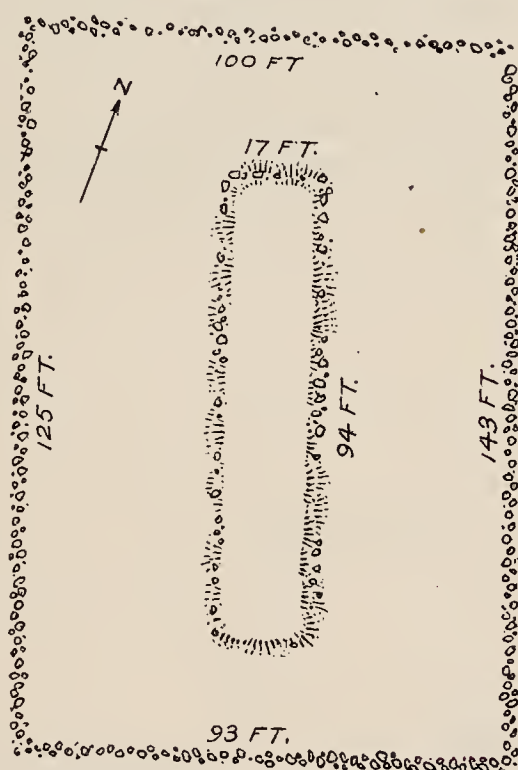 100 FT
N
17 FT.
125 FT.
94 FT.
143 FT.
93 FT.